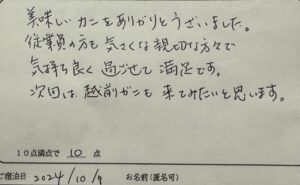 美味しいカニをありがとうございました。
従業員の方も気さくな親切な方々で
気持ち良く過ごせて満足です。
次回は越前がにも来てみたいと思います。
10点満点で 10 点
ご宿泊日 2024/10/9 お名前(匿名可)